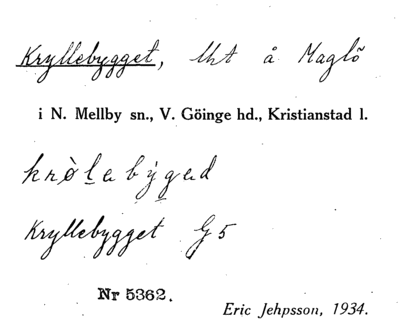 Kryllebygget, lht å Maglö
i N. Mellby sn., V. Göinge hd., Kristianstad l.
krø̀lebýged
Kryllebygget G5
Nr 5362.
Eric Jehpsson, 1934.